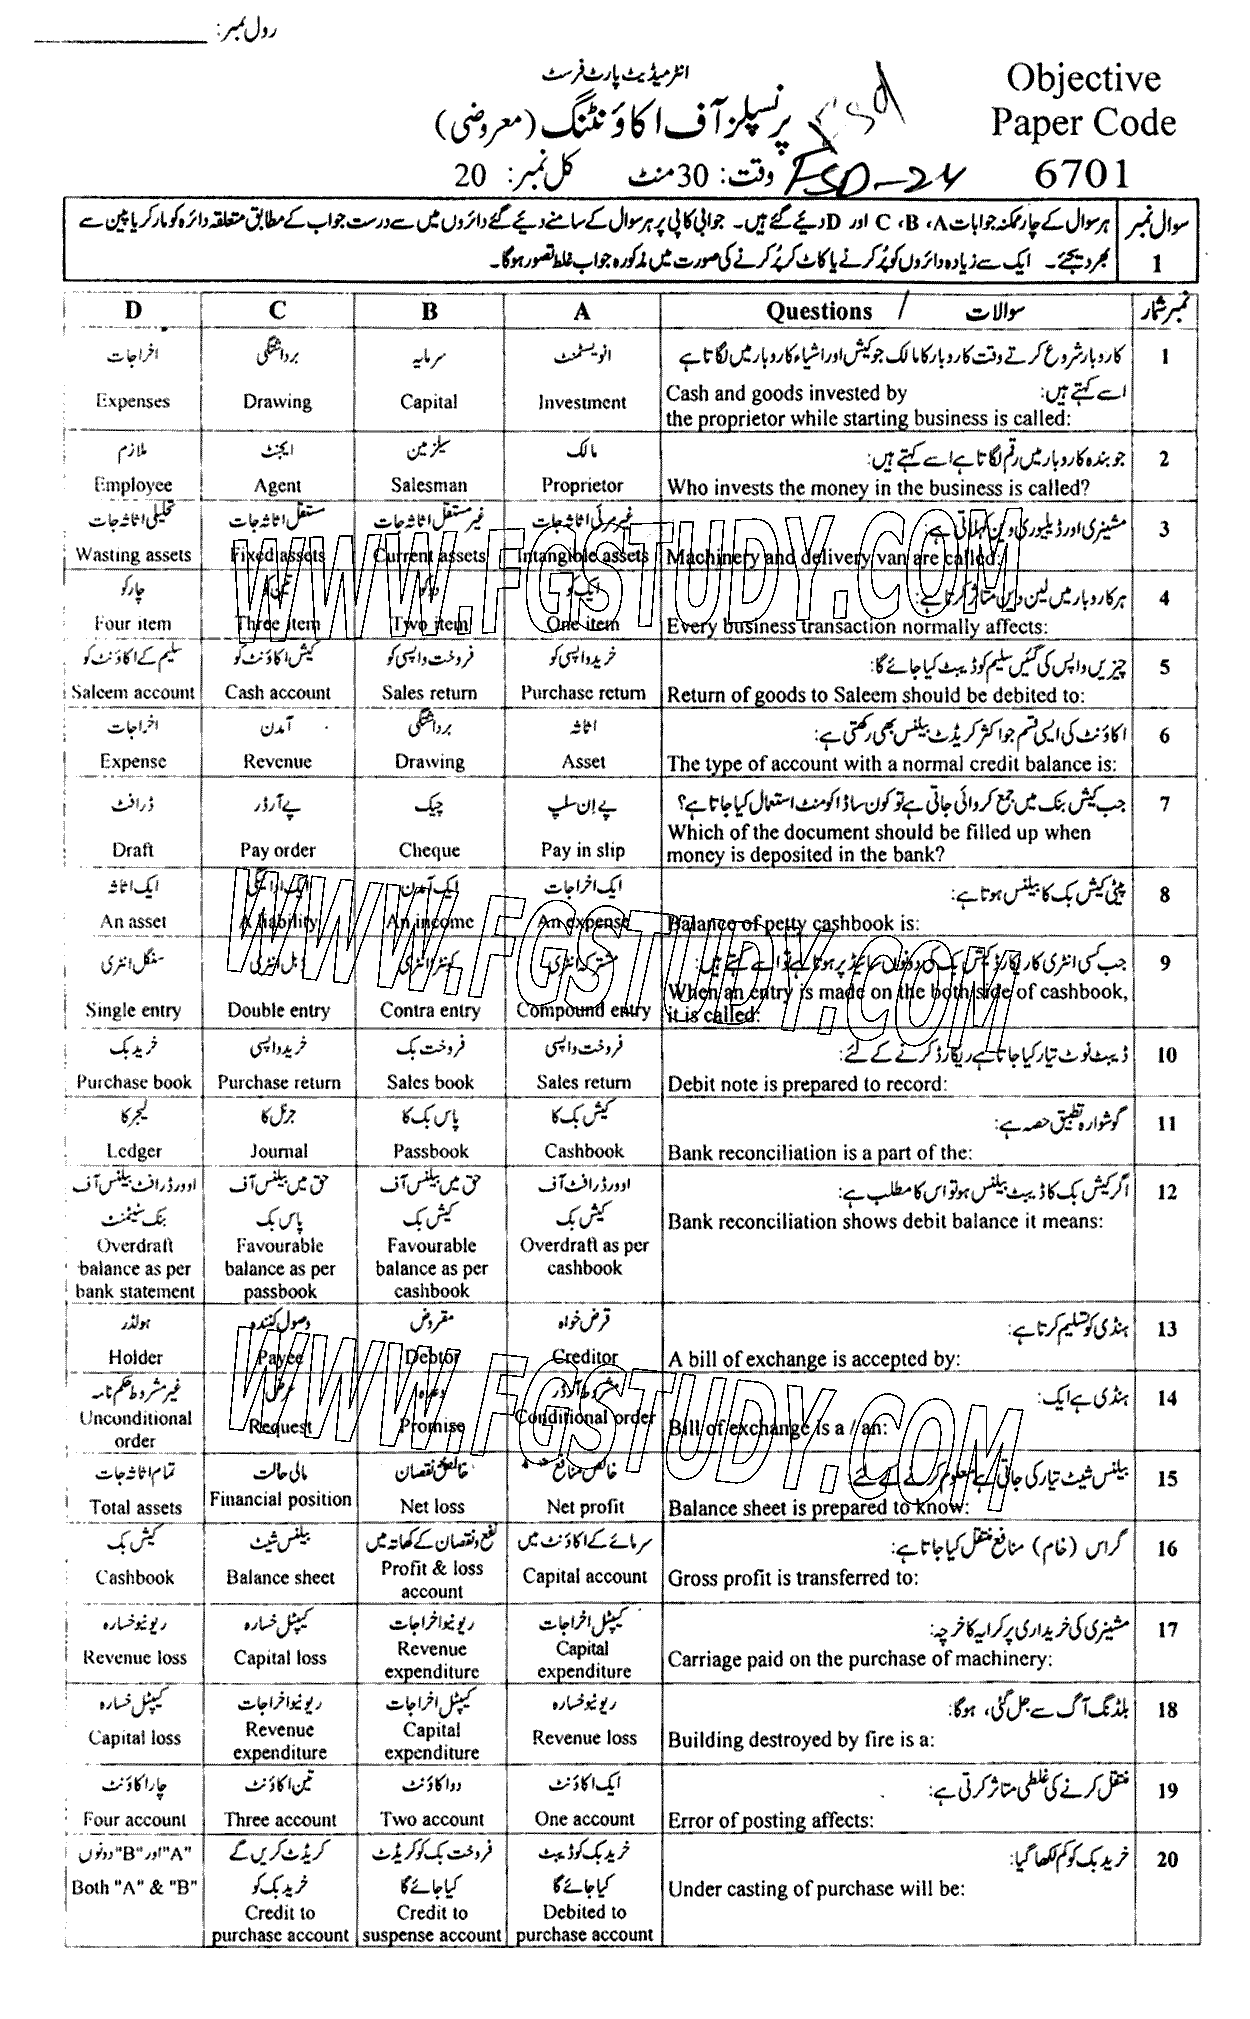 رول نمبر: ____________
انٹرمیڈیٹ پارٹ فرسٹ
Objective
پرنسپلز آف اکاؤنٹنگ (معروضی)
Paper Code
وقت: 30 منٹ کل نمبر: 20
FSD-24
6701
سوال نمبر 1
ہر سوال کے چار ممکنہ جوابات A، B، C اور D دیئے گئے ہیں۔ جوابی کاپی پر ہر سوال کے سامنے دیئے گئے دائروں میں سے درست جواب کے مطابق متعلقہ دائرہ کو مارکر یا پین سے
بھر دیجئے۔ ایک سے زیادہ دائروں کو پُر کرنے یا کاٹ کر پُر کرنے کی صورت میں مذکورہ جواب غلط تصور ہوگا۔
D C B A Questions / سوالات نمبر شمار
اخراجات برداشتگی سرمایہ انویسٹمنٹ کاروبار شروع کرتے وقت کاروبار کا مالک جو کیش اور اشیاء کاروبار میں لگاتا ہے 1
اسے کہتے ہیں:
Expenses Drawing Capital Investment Cash and goods invested by
the proprietor while starting business is called:
ملازم ایجنٹ سیلزمین مالک جو بندہ کاروبار میں رقم لگاتا ہے اسے کہتے ہیں: 2
Employee Agent Salesman Proprietor Who invests the money in the business is called?
تحلیلی اثاثہ جات مستقل اثاثہ جات غیر مستقل اثاثہ جات غیر مرئی اثاثہ جات مشینری اور ڈیلیوری وین کہلاتی ہے: 3
Wasting assets Fixed assets Current assets Intangible assets Machinery and delivery van are called:
چار کو تین کو دو کو ایک کو ہر کاروبار میں لین دین متاثر کرتا ہے: 4
Four item Three item Two item One item Every business transaction normally affects:
سلیم کے اکاؤنٹ کو کیش اکاؤنٹ کو فروخت واپسی کو خرید واپسی کو چیزیں واپس کی گئیں سلیم کو ڈیبٹ کیا جائے گا: 5
Saleem account Cash account Sales return Purchase return Return of goods to Saleem should be debited to:
اخراجات آمدن برداشتگی اثاثہ اکاؤنٹ کی ایسی قسم جو اکثر کریڈٹ بیلنس بھی رکھتی ہے: 6
Expense Revenue Drawing Asset The type of account with a normal credit balance is:
ڈرافٹ پے آرڈر چیک پے اِن سلپ جب کیش بنک میں جمع کروائی جاتی ہے تو کون سا ڈاکومنٹ استعمال کیا جاتا ہے؟ 7
Draft Pay order Cheque Pay in slip Which of the document should be filled up when
money is deposited in the bank?
ایک اثاثہ ایک آمدن ایک اخراجات پٹی کیش بک کا بیلنس ہوتا ہے: 8
An asset A liability An income An expense Balance of petty cashbook is:
سنگل انٹری ڈبل انٹری کونٹرا انٹری مشترکہ انٹری جب کسی انٹری کا ریکارڈ کیش بک کی دونوں سائیڈ پر ہوتا ہے تو اسے کہتے ہیں: 9
Single entry Double entry Contra entry Compound entry When an entry is made on the both side of cashbook,
it is called:
خرید بک خرید واپسی فروخت بک فروخت واپسی ڈیبٹ نوٹ تیار کیا جاتا ہے ریکارڈ کرنے کے لئے: 10
Purchase book Purchase return Sales book Sales return Debit note is prepared to record:
لیجر کا جرنل کا پاس بک کا کیش بک کا گوشوارہ تطبیق حصہ ہے: 11
Ledger Journal Passbook Cashbook Bank reconciliation is a part of the:
اوورڈرافٹ بیلنس آف حق میں بیلنس آف حق میں بیلنس آف اوورڈرافٹ آف اگر کیش بک کا ڈیبٹ بیلنس ہو تو اس کا مطلب ہے: 12
بنک سٹیٹمنٹ پاس بک کیش بک کیش بک Bank reconciliation shows debit balance it means:
Overdraft Favourable Favourable Overdraft as per
balance as per balance as per balance as per cashbook
bank statement passbook cashbook
ہولڈر وصول کنندہ مقروض قرض خواہ ہنڈی کو تسلیم کرتا ہے: 13
Holder Payee Debtor Creditor A bill of exchange is accepted by:
غیر مشروط حکم نامہ وعدہ مشروط آرڈر ہنڈی ہے ایک: 14
Unconditional Request Promise Conditional order Bill of exchange is a / an:
order
تمام اثاثہ جات مالی حالت خالص نقصان خالص منافع بیلنس شیٹ تیار کی جاتی ہے معلوم کرنے کے لئے: 15
Total assets Financial position Net loss Net profit Balance sheet is prepared to know:
کیش بک بیلنس شیٹ نفع و نقصان کے کھاتہ میں سرمائے کے اکاؤنٹ میں گراس (خام) منافع منتقل کیا جاتا ہے: 16
Cashbook Balance sheet Profit & loss Capital account Gross profit is transferred to:
account
ریونیو خسارہ کیپٹل خسارہ ریونیو اخراجات کیپٹل اخراجات مشینری کی خریداری پر کرایہ کا خرچہ: 17
Revenue loss Capital loss Revenue Capital Carriage paid on the purchase of machinery:
expenditure expenditure
کیپٹل خسارہ ریونیو اخراجات کیپٹل اخراجات ریونیو خسارہ بلڈنگ آگ سے جل گئی، ہوگا: 18
Capital loss Revenue Capital Revenue loss Building destroyed by fire is a:
expenditure expenditure
چار اکاؤنٹ تین اکاؤنٹ دو اکاؤنٹ ایک اکاؤنٹ منتقل کرنے کی غلطی متاثر کرتی ہے: 19
Four account Three account Two account One account Error of posting affects:
"A" اور "B" دونوں کریڈٹ کریں گے فروخت بک کو کریڈٹ خرید بک کو ڈیبٹ خرید بک کو کم لکھا گیا: 20
Both "A" & "B" خرید بک کو کیا جائے گا کیا جائے گا Under casting of purchase will be:
Credit to Credit to Debited to
purchase account suspense account purchase account
WWW.FGSTUDY.COM
WWW.FGSTUDY.COM
WWW.FGSTUDY.COM